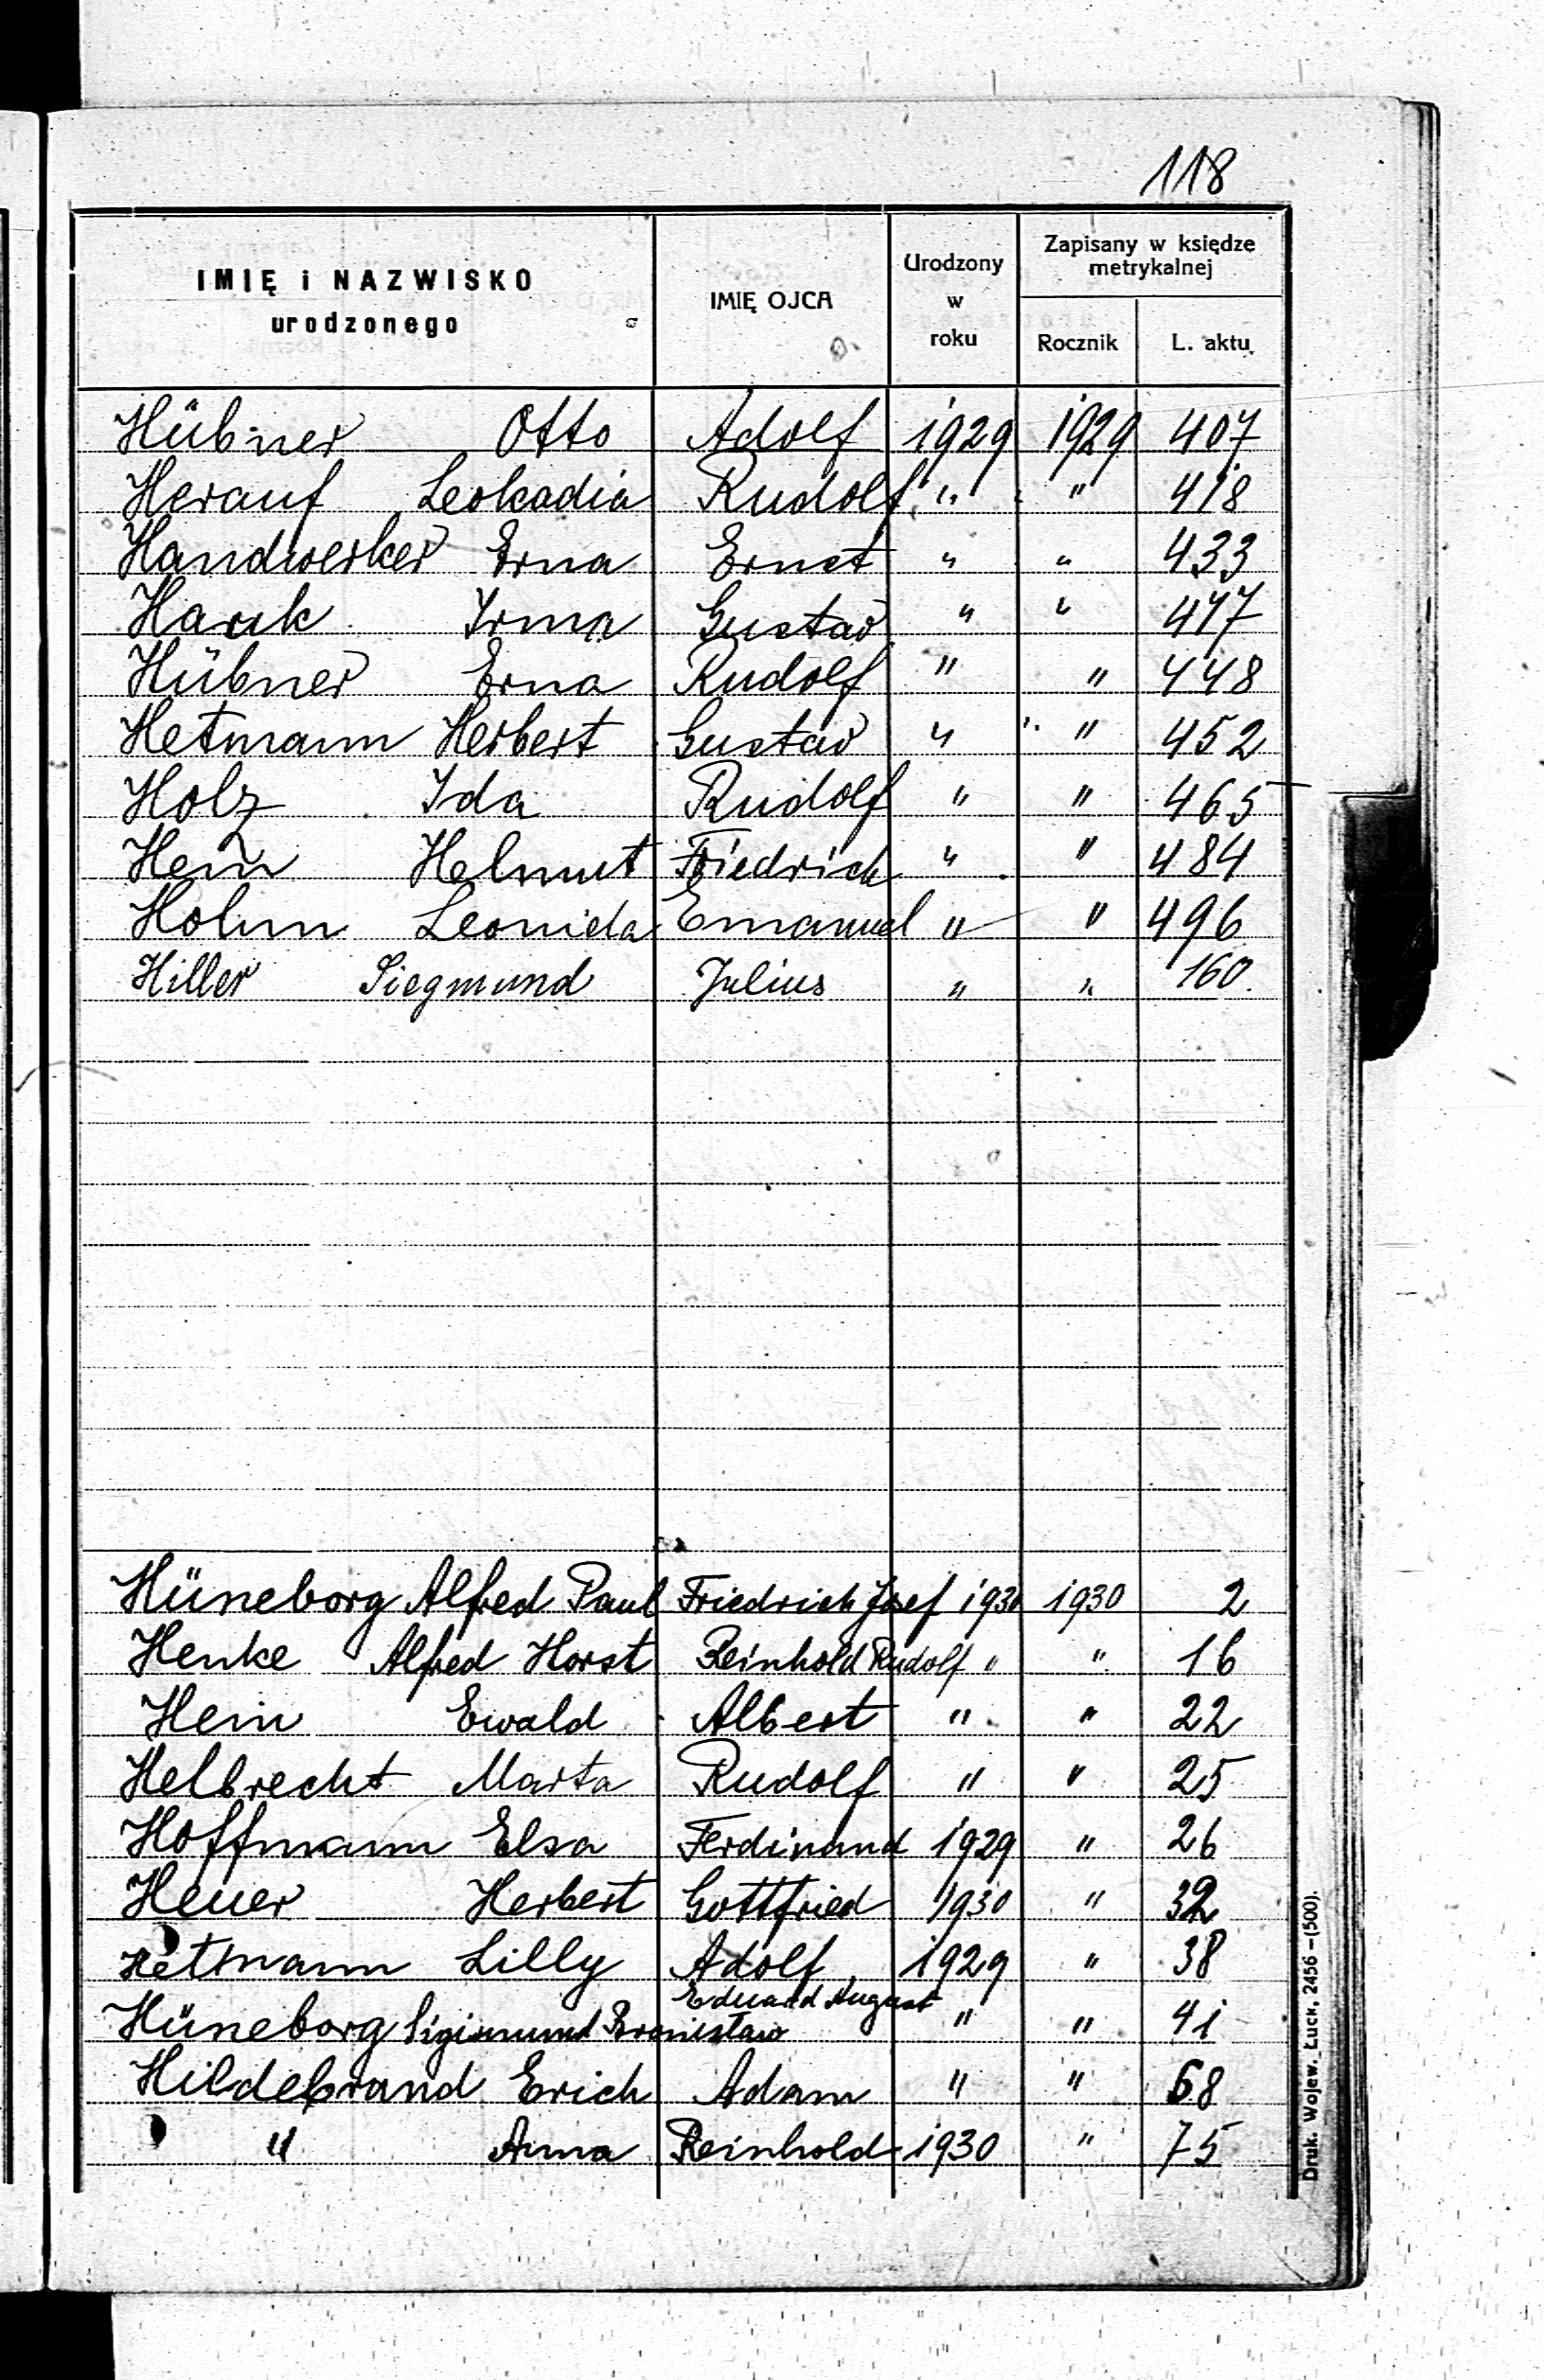 118
IMIĘ i NAZWISKO urodzonego IMIĘ OJCA Urodzony w roku Zapisany w księdze metrykalnej Rocznik L. aktu
Hübner Otto Adolf 1929 1929 407
Herauf Leokadia Rudolf " " 418
Handwerker Erna Ernst " " 433
Hauk Irma Gustav " "
Hübner Erna Rudolf " " 448
Hetmann Herbert Gustav " " 452
Holz Ida Rudolf " " 465
Hein Helmut Friedrich " " 484
Holm Leonida Emanuel " " 496
Hiller Siegmund Julius " " 160
Hüneborg Alfred Paul Friedrich Josef 1930 1930 2
Henke Alfred Horst Reinhold Rudolf " " 16
Hein Ewald Albert " " 22
Helbrecht Marta Rudolf " " 25
Hoffmann Elsa Ferdinand 1929 " 26
Heuer Herbert Gottfried 1930 " 32
Hetmann Lilly Adolf 1929 " 38
Hüneborg Sigismund Bronislaw Eduard August " " 41
Hildebrand Erich Adam " " 68
" Anna Reinhold 1930 " 75
Druk. Wojew. Łuck, 2456 – (500).